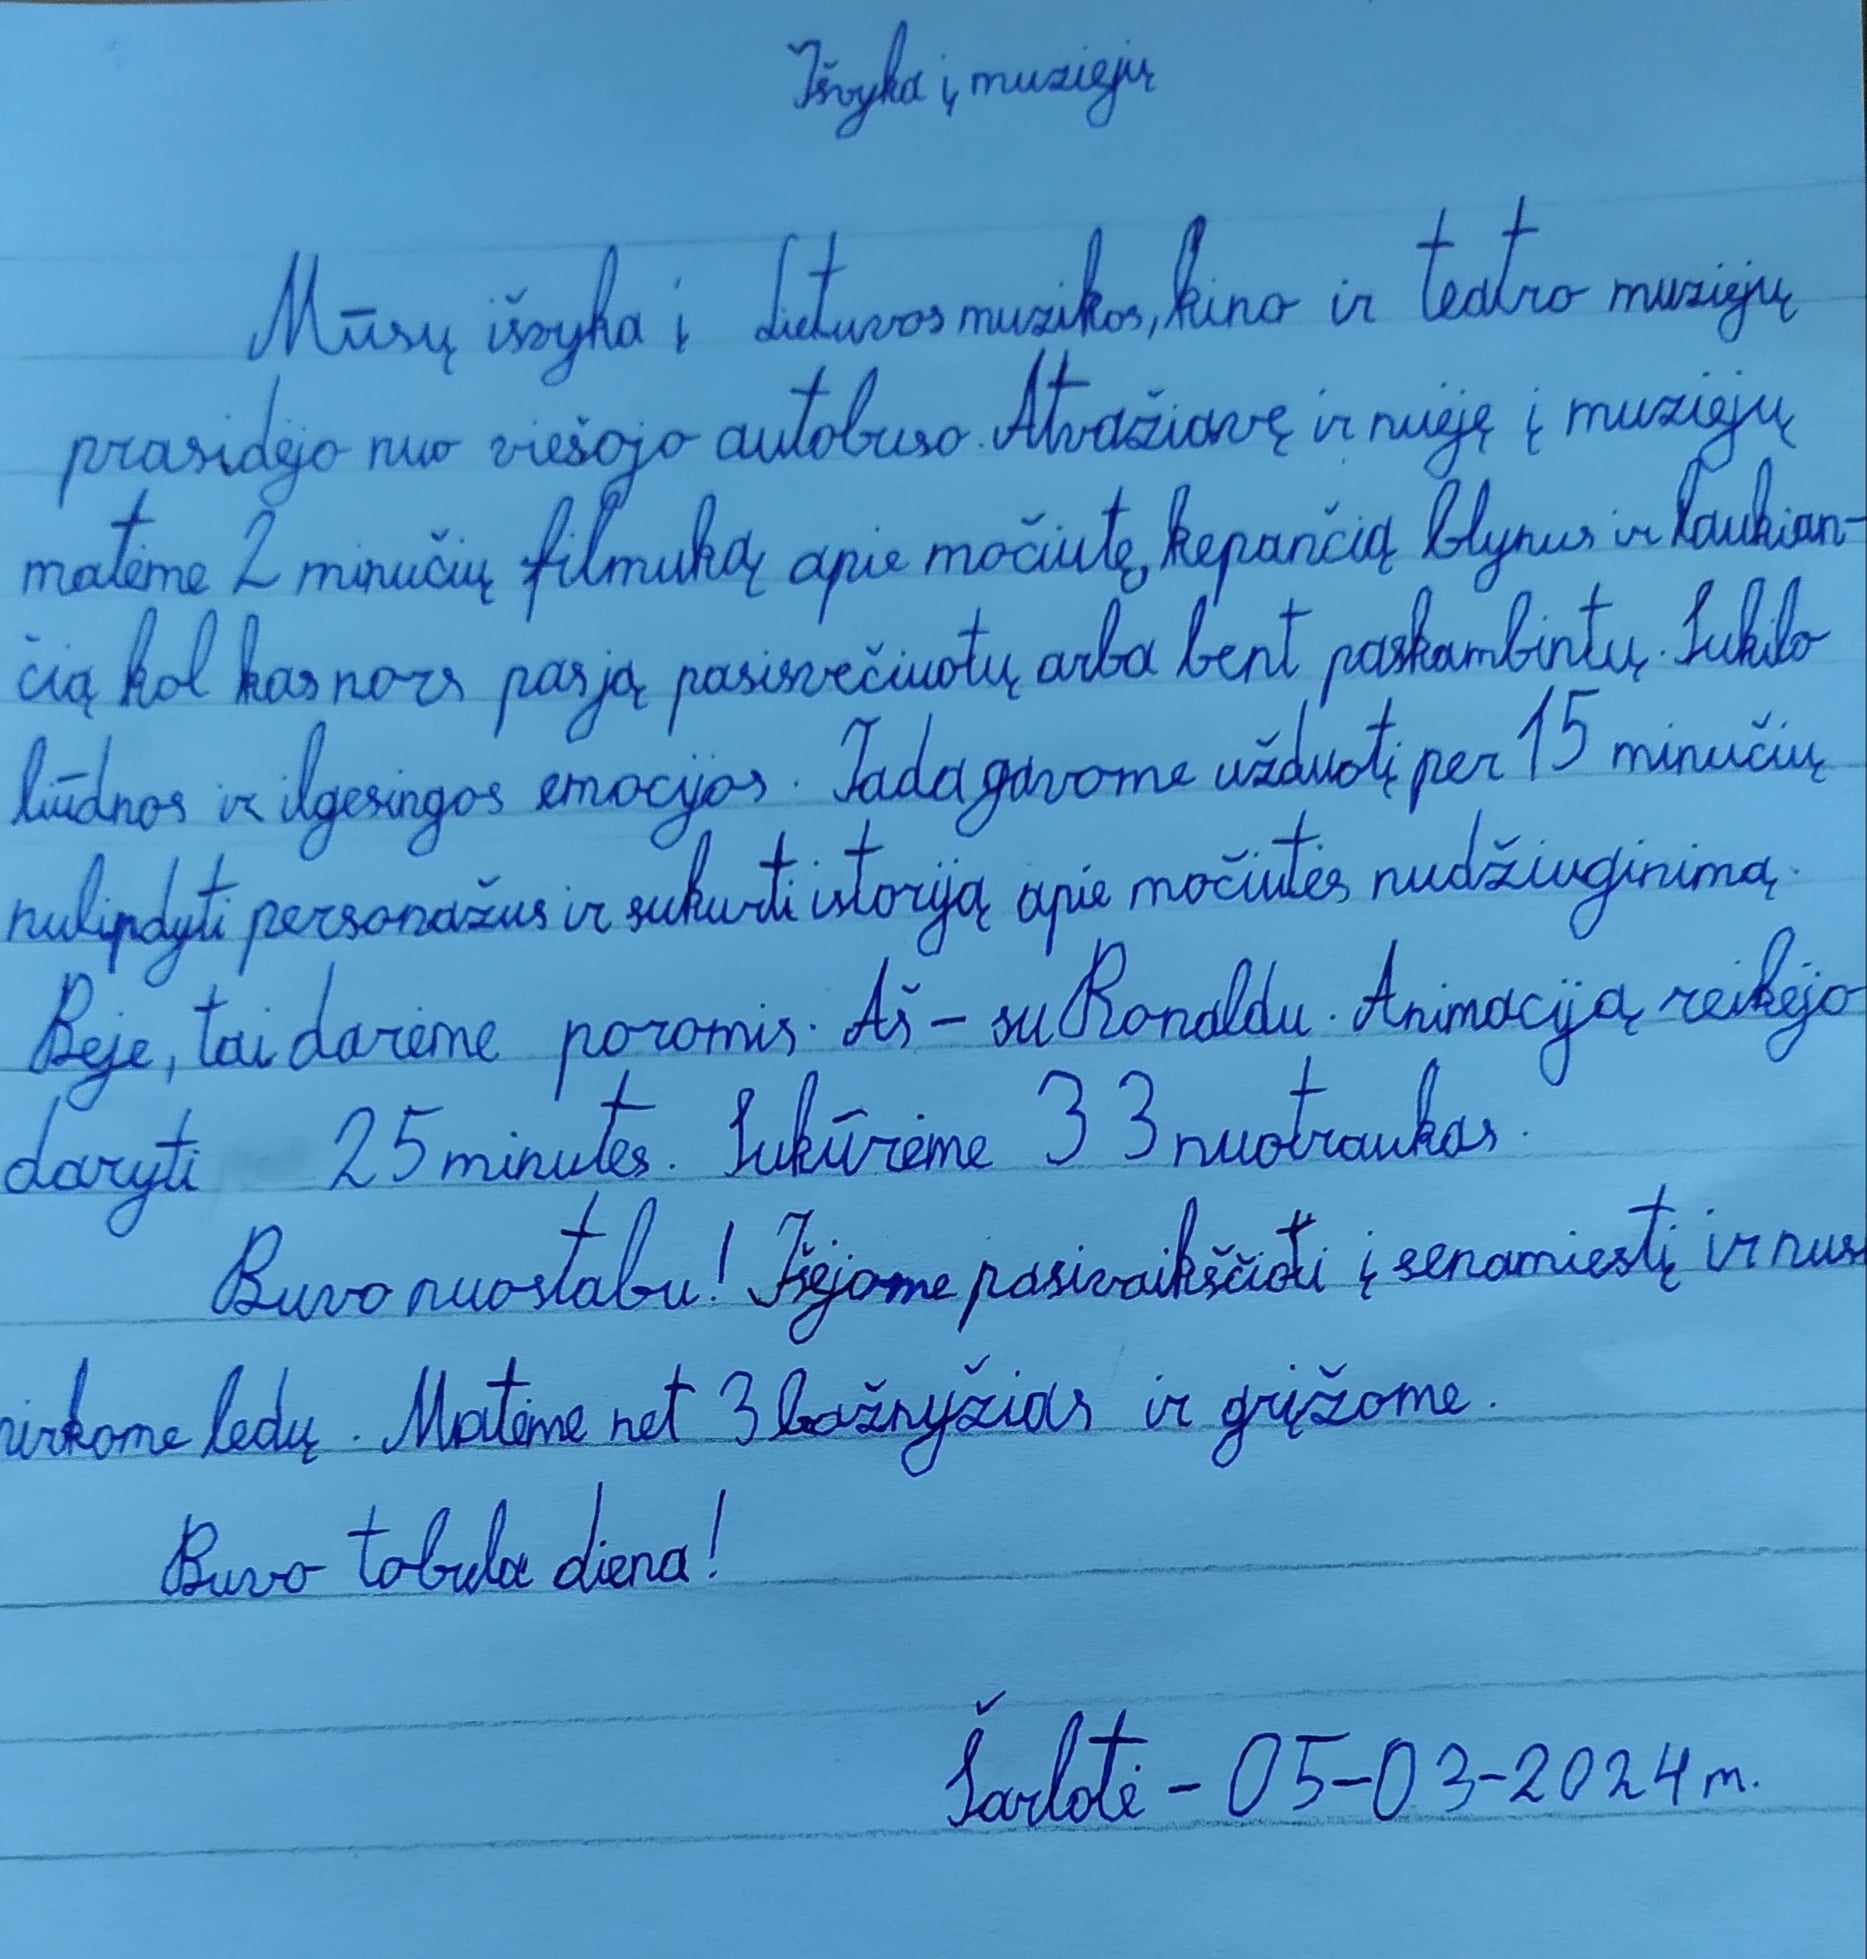 Išvyka į muziejų
Mūsų išvyka į Lietuvos muzikos, kino ir teatro muziejų
prasidėjo nuo viešojo autobuso. Atvažiavę ir nuėję į muziejų
matėme 2 minučių filmuką apie močiutę, kepančią blynus ir laukian-
čią kol kas nors pas ją pasisvečiuotų arba bent paskambintų. Sukilo
liūdnos ir ilgesingos emocijos. Tada gavome užduotį per 15 minučių
nulipdyti personažus ir sukurti istoriją apie močiutės nudžiuginimą.
Beje, tai darėme poromis. Aš – su Ronaldu. Animaciją reikėjo
daryti 25 minutes. Sukūrėme 33 nuotraukas.
Buvo nuostabu! Išėjome pasivaikščioti į senamiestį ir nusi
pirkome ledų. Matėme net 3 bažnyžias ir grįžome.
Buvo tobula diena!
Šarlotė – 05-03-2024 m.